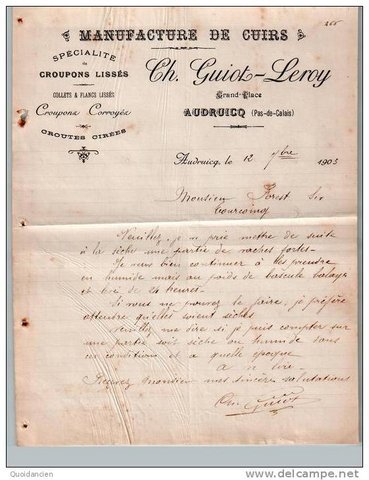 266
MANUFACTURE DE CUIRS
SPÉCIALITÉ
de
CROUPONS LISSÉS
COLLETS & FLANCS LISSÉS
Croupons Corroyés
CROUTES CIRÉES
Ch. Guiot-Leroy
Grand-Place
AUDRUICQ (Pas-de-Calais)
Audruicq, le 12 7bre 1903
Monsieur Forest Sr
Tourcoing
Veuillez, je vous prie mettre de suite
à la sèche une partie de vaches fortes.
Je veux bien continuer à les prendre
en humide mais au poids de bascule
et de 24 heures.
Si vous ne pouvez le faire, je préfère
attendre qu'elles soient sèches
Veuillez me dire si je puis compter sur
une partie soit sèche ou humide dans
ces conditions et à quelle époque
A v lire
Recevez Monsieur mes sincères salutations
Ch. Guiot
© Quoidanden
delcampe.net